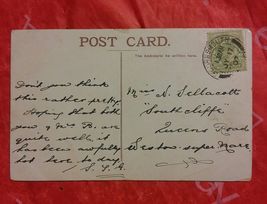 POST CARD.
The Address to be written here.
Don't you think
this rather pretty.
Hoping that both
you & Mrs B. are
quite well, it
has been awfully
hot here to-day.
S. S. A.
Miss N. Sellacott
"Southcliffe"
Queens Road
Weston-super-Mare